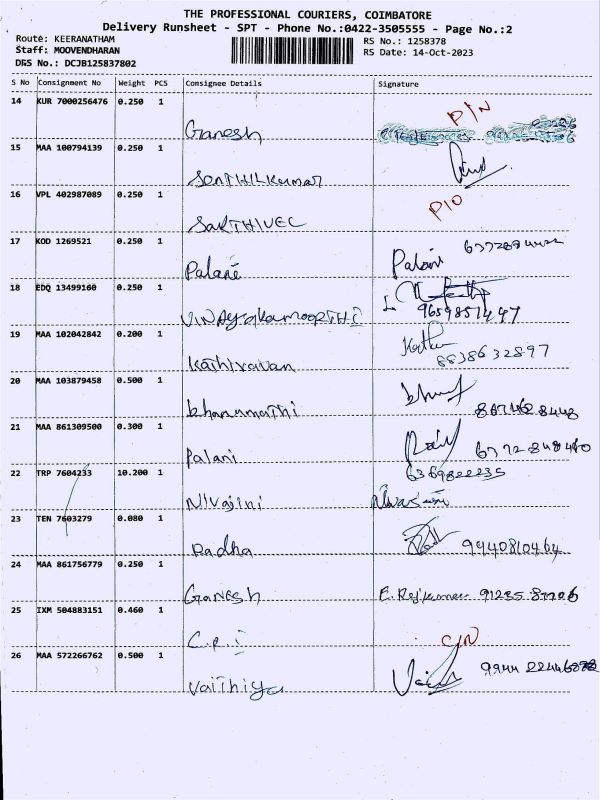 THE PROFESSIONAL COURIERS, COIMBATORE
Delivery Runsheet - SPT - Phone No.:0422-3505555 - Page No.:2
Route: KEERANATHAM
RS No.: 1258378
Staff: MOOVENDHARAN
RS Date: 14-Oct-2023
D&S No.: DCJB125837802
S No Consignment No Weight PCS Consignee Details Signature
14 KUR 7000256476 0.250 1
P/N
Ganesh
15 MAA 100794139 0.250 1
SENTHILKUMAR
16 VPL 402987089 0.250 1
P/O
SAKTHIVEL
17 KOD 1269521 0.250 1
Palani
Palani
18 EDQ 13499160 0.250 1
VINAYAKAMOORTHI 9659851497
19 MAA 102042842 0.200 1
Kathiravan 8838632897
20 MAA 103879458 0.500 1
bhanumathi
21 MAA 861309500 0.300 1
Palani
22 TRP 7604233 10.200 1 6369822235
Nivajini
23 TEN 7603279 0.080 1
Radha 9940810464
24 MAA 861756779 0.250 1
Ganesh E. Rajkumar
25 IXM 504883151 0.460 1
C.R.I C/N
26 MAA 572266762 0.500 1
Vaithiya